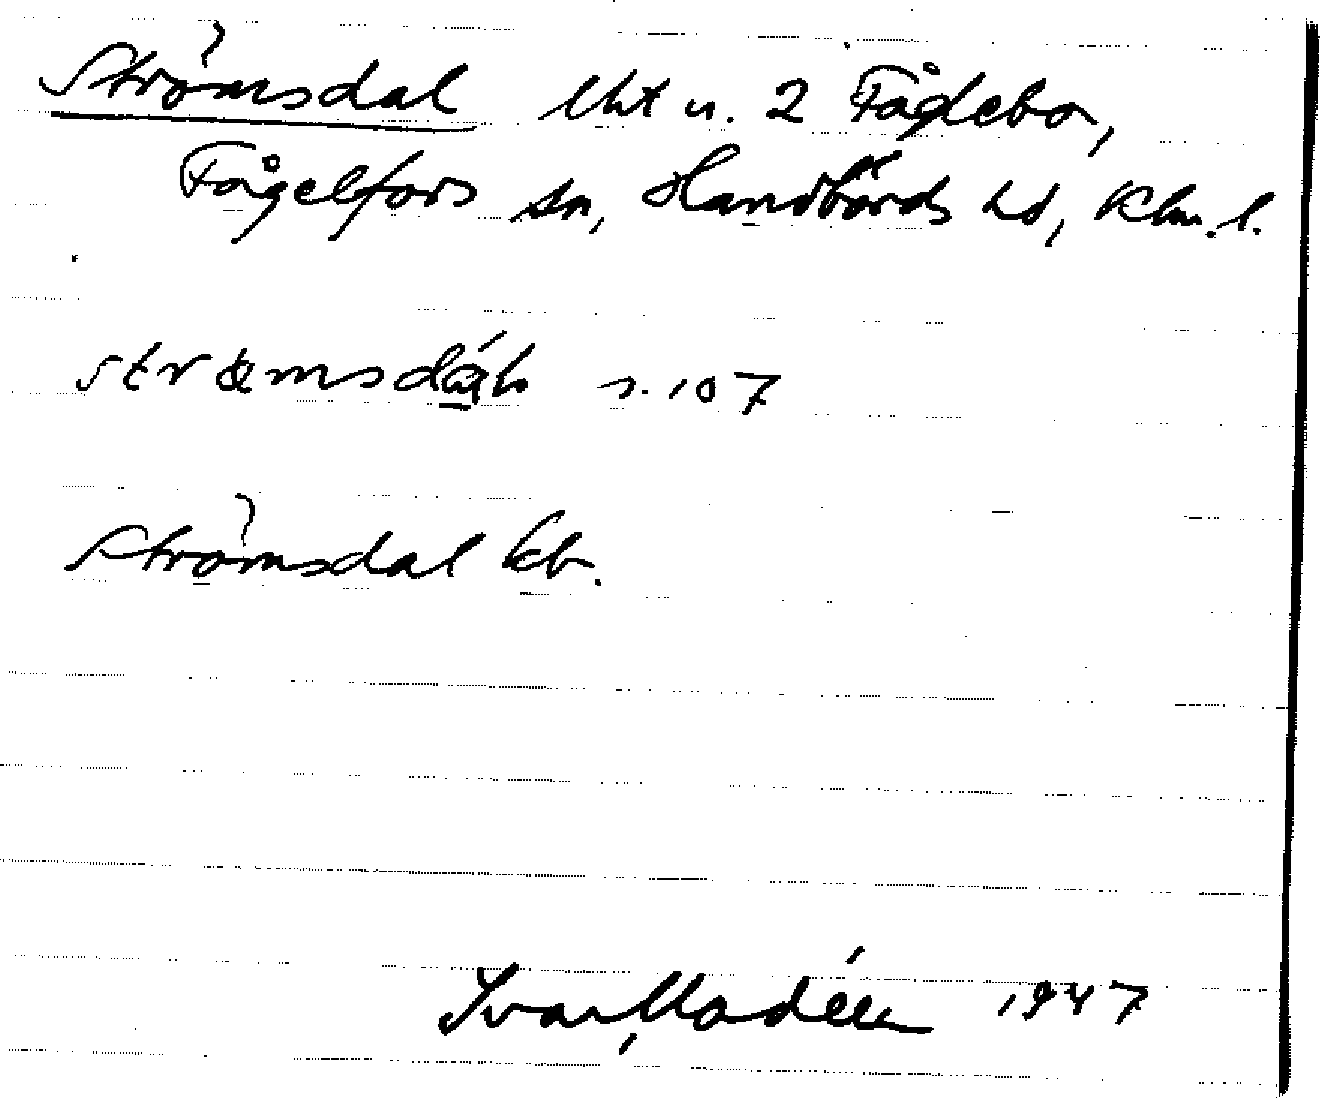 Strömsdal lht u. 2 Fåglebo,
Fågelfors sn, Handbörds hd, Klm. l.
s. 107
Strömsdal kb.
Ivar Modéer 1947